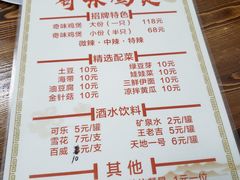 招牌特色
奇味鸡煲 大份（一只） 118元
奇味鸡煲 小份（半只） 68元
微辣·中辣·特辣
精选配菜
土豆 10元 绿豆芽 10元
海带 10元 娃娃菜 10元
油豆腐 10元 三鲜伊面 10元
金针菇 10元 凉拌黄瓜 10元
酒水饮料
可乐 5元/罐 矿泉水 2元/瓶
雪花 7元/支 王老吉 5元/罐
百威 元/支 天地一号 6元/罐
10
其他